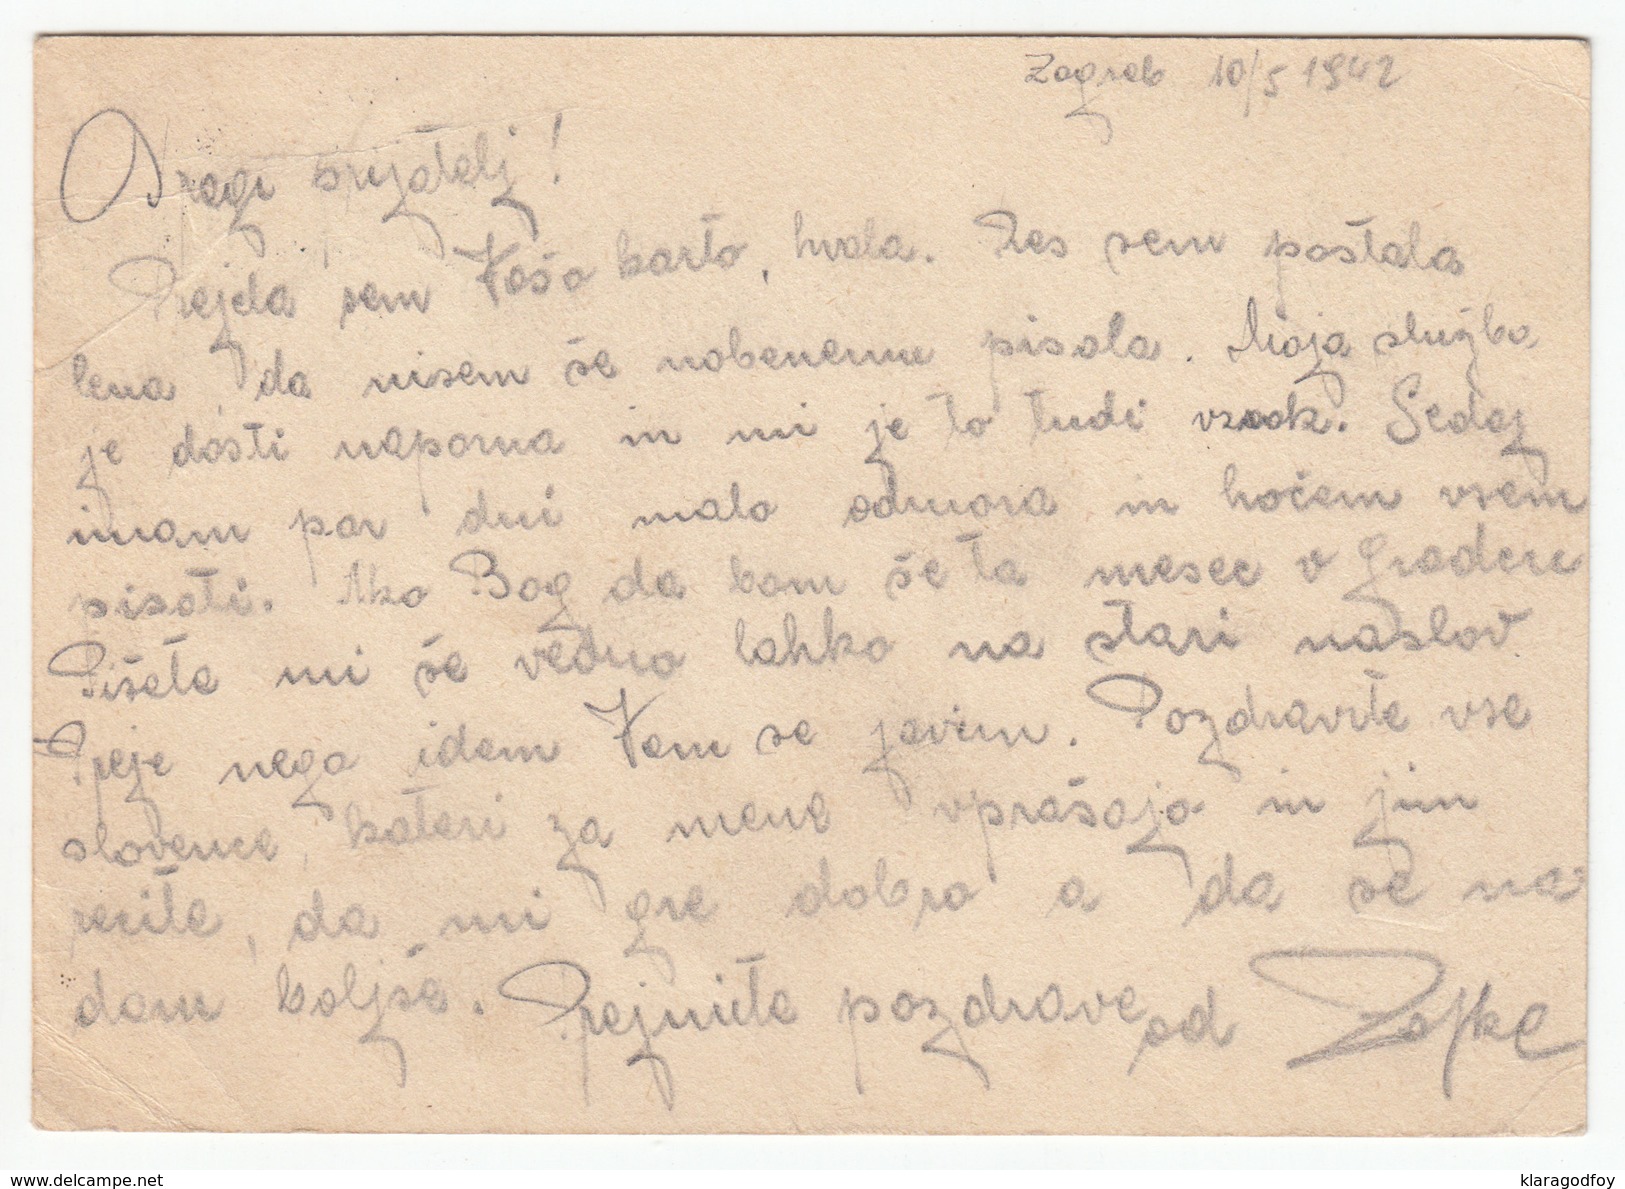 Zagreb 10/5 1942
Dragi prijatelj!
Prejela sem Vašo karto, hvala. Res sem postala
lena, da nisem še nobenemu pisala. Moja služba
je dosti naporna in mi je to tudi vzrok. Sedaj
imam par dni malo odmora in hočem vsem
pisati. Ako Bog da bom še ta mesec v
Pišete mi še vedno lahko na stari naslov.
Preje nego idem Vam se javim. Pozdravite vse
slovence, kateri za mene vprašajo in jim
recite, da mi gre dobro a da se na-
dam boljše. Prejmite pozdrave od Zofke
delcampe.net
klaragodfoy